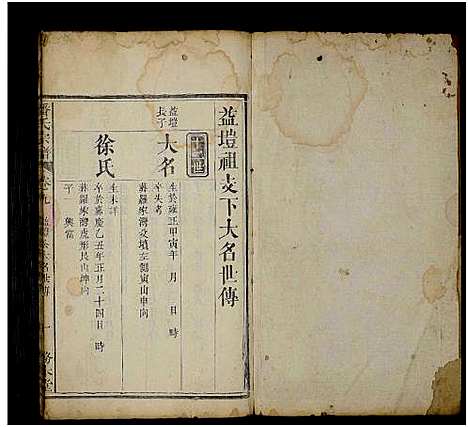 益塏祖支下大名世傳
益塏
長子
大名
生於雍正甲寅年 月 日 時
卒失考
葬羅家灣父墳左側寅山申向
徐氏
生未詳
卒於嘉慶乙丑年正月二十四日 時
葬羅家灣虎形艮山坤向
子一 興富
氏宗譜 卷九 大名世傳 一